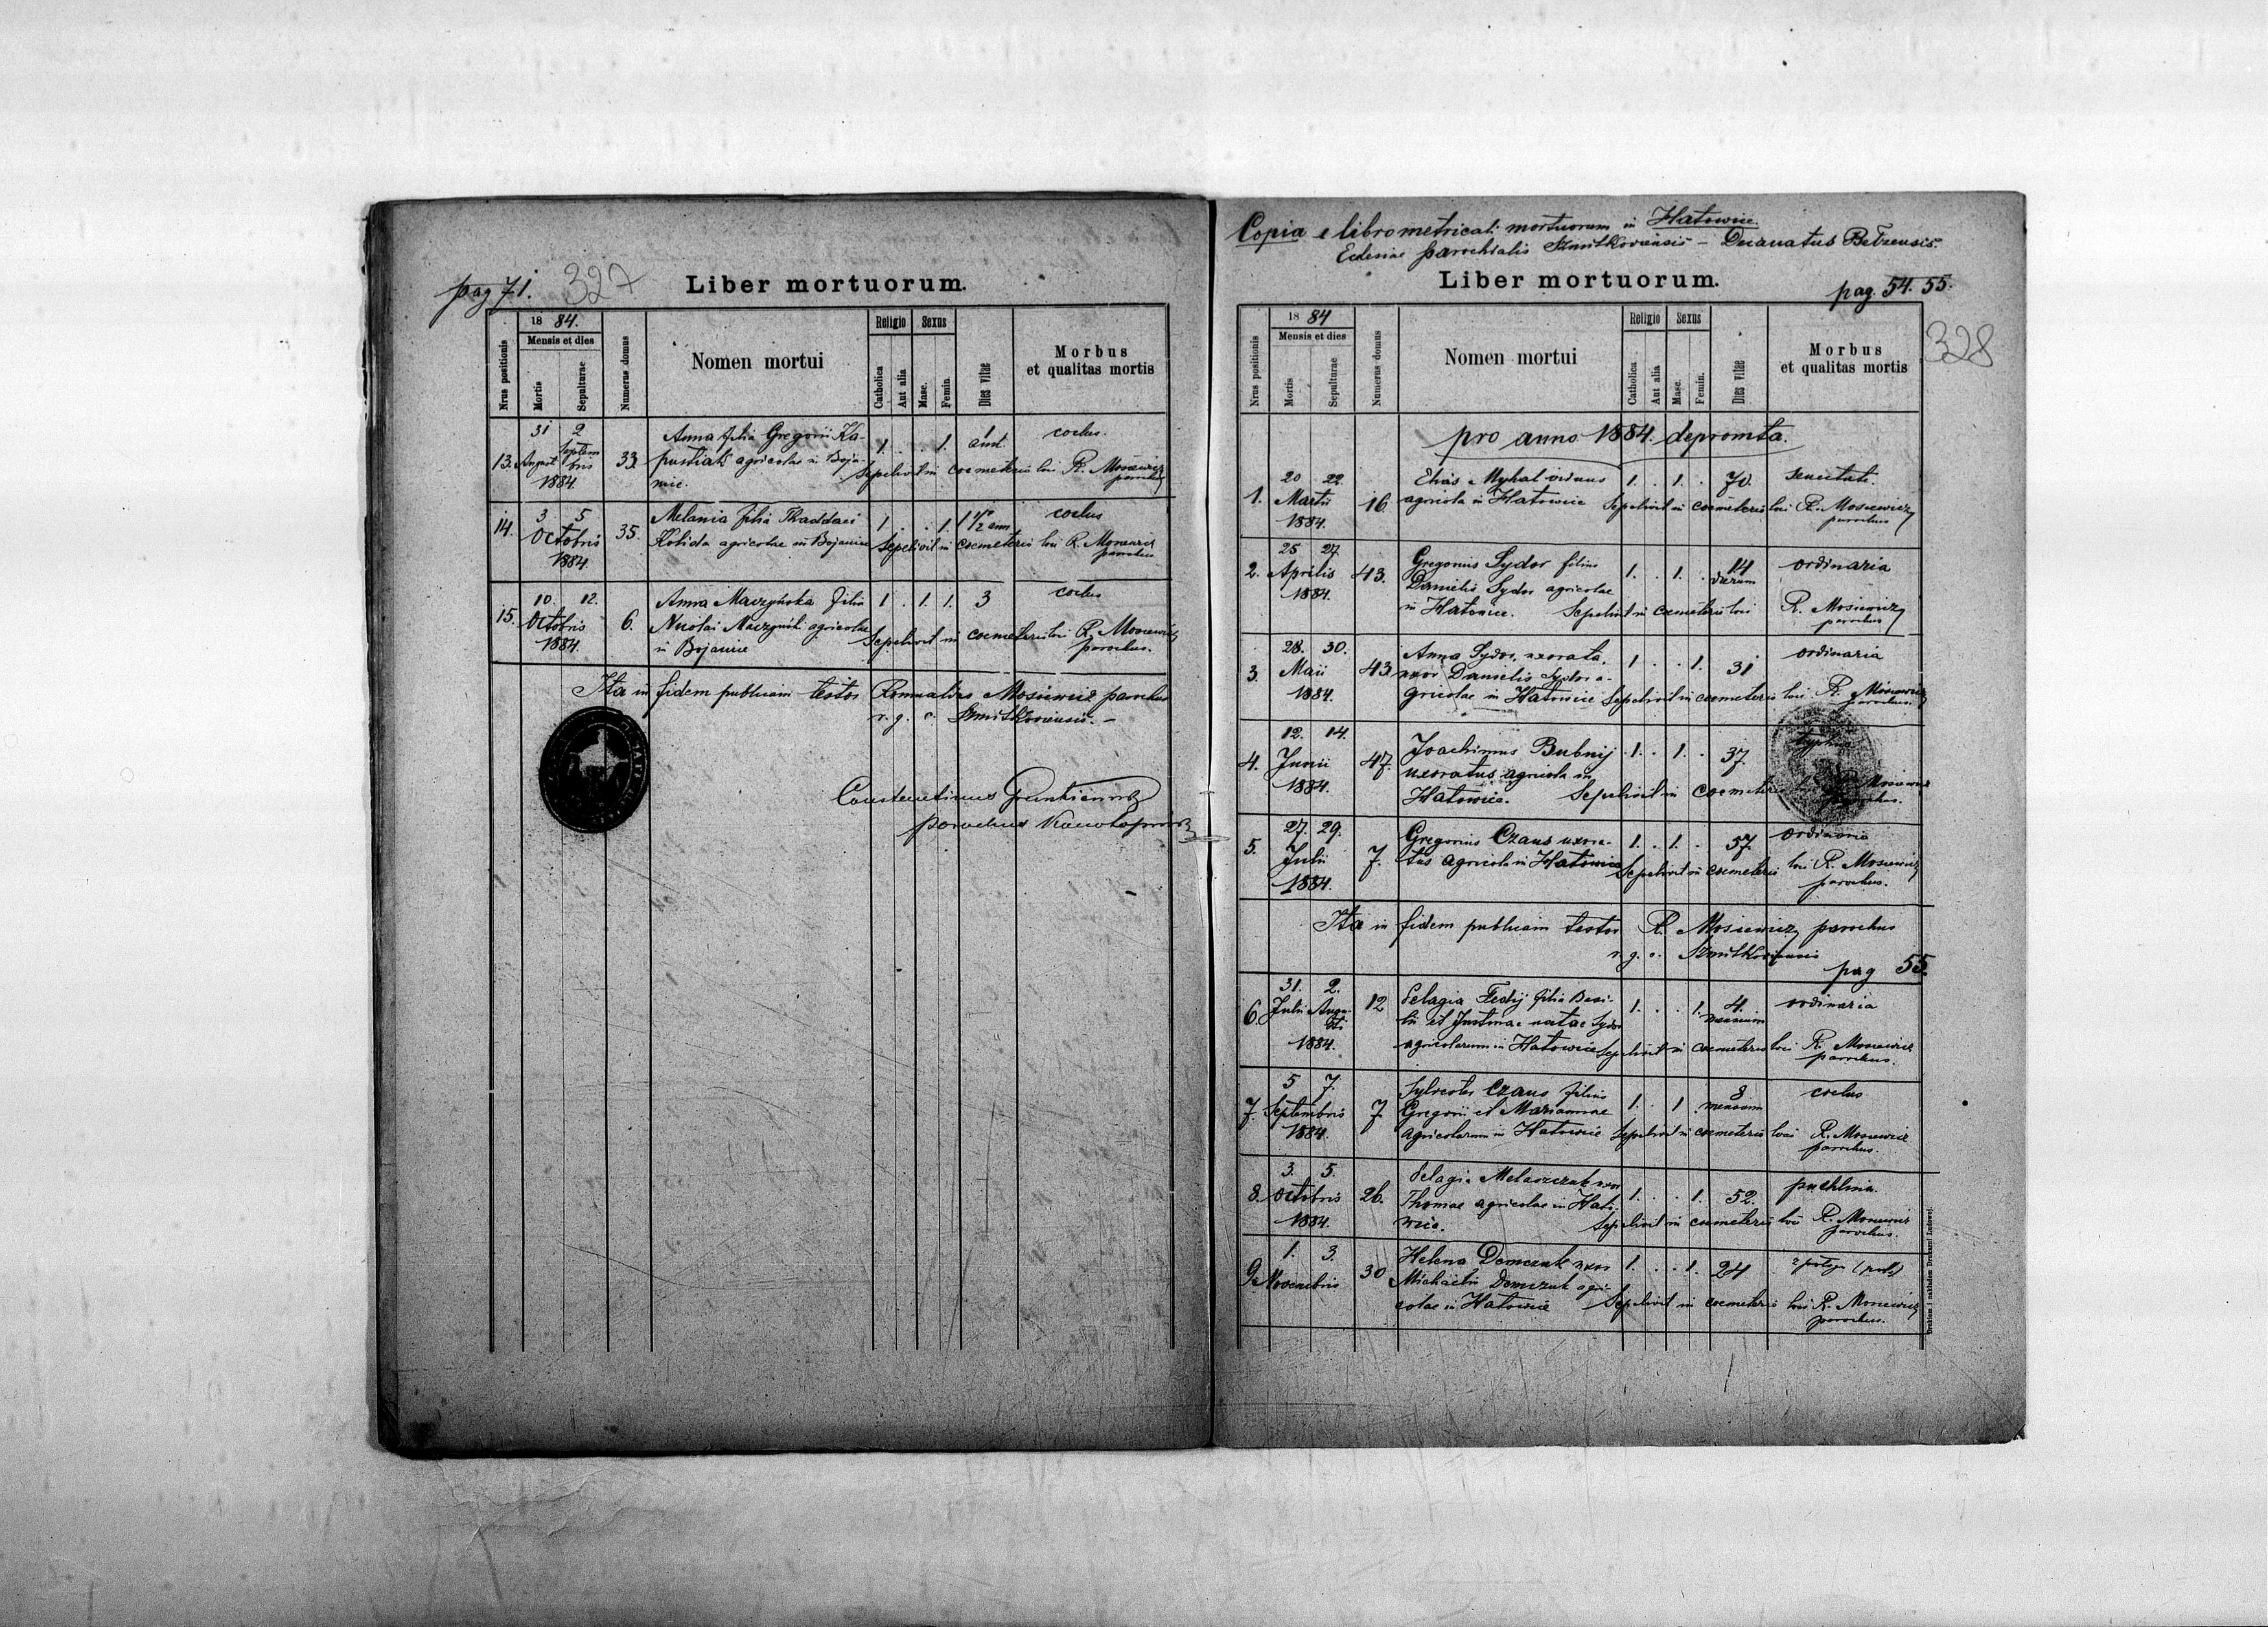 pag 71.
327
Liber mortuorum.
Nrus positionis
18 84.
Mensis et dies
Mortis
Sepulturae
Numerus domus
Nomen mortui
Religio
Catholica
Aut alia
Sexus
Masc.
Femin.
Dies vitae
Morbus
et qualitas mortis
13. 31 August 2 Septem
bris
1884.
33.
Anna filia Gregorii Ka-
pustiak agricolae in Boja-
nice.
1 . . 1. 1 ann. coctus.
Sepelivit in coemeterio loci R. Mosiewicz
parochus
14. 3 5
Octobris
1884.
35.
Melania filia Thaddaei
Kohida agricolae in Bojanice
1 . . 1. 1 1/2 ann. coctus
Sepelivit in coemeterio loci R. Mosiewicz
parochus
15. 10. 12.
Octobris
1884.
6.
Anna Maczyńska filia
Nicolai Maczyński agricolae
in Bojanice
1 . 1. 1. 3 coctus
Sepelivit in coemeterio loci R. Mosiewicz
parochus.
Ita in fidem publicam testor Romualdus Mosiewicz parochus
r. g. c. Szmitkoviensis. –
Constantinus
parochus
Copia e libro metricali mortuorum in Hatowice
Eclesiae parochialis Szmitkoviensis – Decanatus Bełzensis.
Liber mortuorum.
pag. 54. 55.
328
Nrus positionis
18 84
Mensis et dies
Mortis
Sepulturae
Numerus domus
Nomen mortui
Religio
Catholica
Aut alia
Sexus
Masc.
Femin.
Dies vitae
Morbus
et qualitas mortis
pro anno 1884. depromta.
1. 20 22.
Martii
1884.
16
Elias Mychal viduus
agricola in Hatowice
1. . 1. . 70. senectute.
Sepelivit in coemeterio loci R. Mosiewicz
parochus
2. 25 27.
Aprilis
1884.
43.
Gregorius Sydor filius
Danielis Sydor agricolae
in Hatowice.
1. . 1. . 14
dierum
ordinaria
Sepelivit in coemeterio loci R. Mosiewicz
parochus
3. 28. 30.
Maii
1884.
43.
Anna Sydor, uxorata,
uxor Danielis Sydor a-
gricolae in Hatowice
1 . . 1. 31 ordinaria
Sepelivit in coemeterio loci R. Mosiewicz
parochus.
4. 12. 14.
Junii
1884.
47.
Joachimus Bubnij
uxoratus agricola in
Hatowice.
1. . 1. . 37. typhus
Sepelivit in coemeterio loci R. Mosiewicz
parochus.
5. 27. 29.
Julii
1884.
7.
Gregorius Czaus uxora-
tus agricola in Hatowice
1. . 1. . 57. ordinaria
Sepelivit in coemeterio loci R. Mosiewicz
parochus.
Ita in fidem publicam testor R. Mosiewicz parochus
r. g. c. Szmitkoviensis
pag 55.
6. 31. Julii 2. Augu-
sti
1884.
12
Pelagia Fedij filia Basi-
lii et Justinae natae Sydor
agricolarum in Hatowice
1. . . 1. 4.
mensium
ordinaria
Sepelivit in coemeterio loci R. Mosiewicz
parochus.
7. 5 7.
Septembris
1884.
7.
Sylvester Czaus filius
Gregorii et Mariannae
agricolarum in Hatowice
1. . 1 . 8
mensium
coctus
Sepelivit in coemeterio loci R. Mosiewicz
parochus.
8. 3. 5.
Octobris
1884.
26.
Pelagia Melaszczuk uxor
Thomae agricolae in Hato-
wice.
1. . . 1. 52. puchlina.
Sepelivit in coemeterio loci R. Mosiewicz
parochus.
9. 1. 3.
Novembris
30
Helena Demczuk uxor
Michaelis Demczuk agri-
colae in Hatowice
1. . . 1. 24
Sepelivit in coemeterio loci R. Mosiewicz
parochus.
Drukiem i nakładem Drukarni Ludowej.